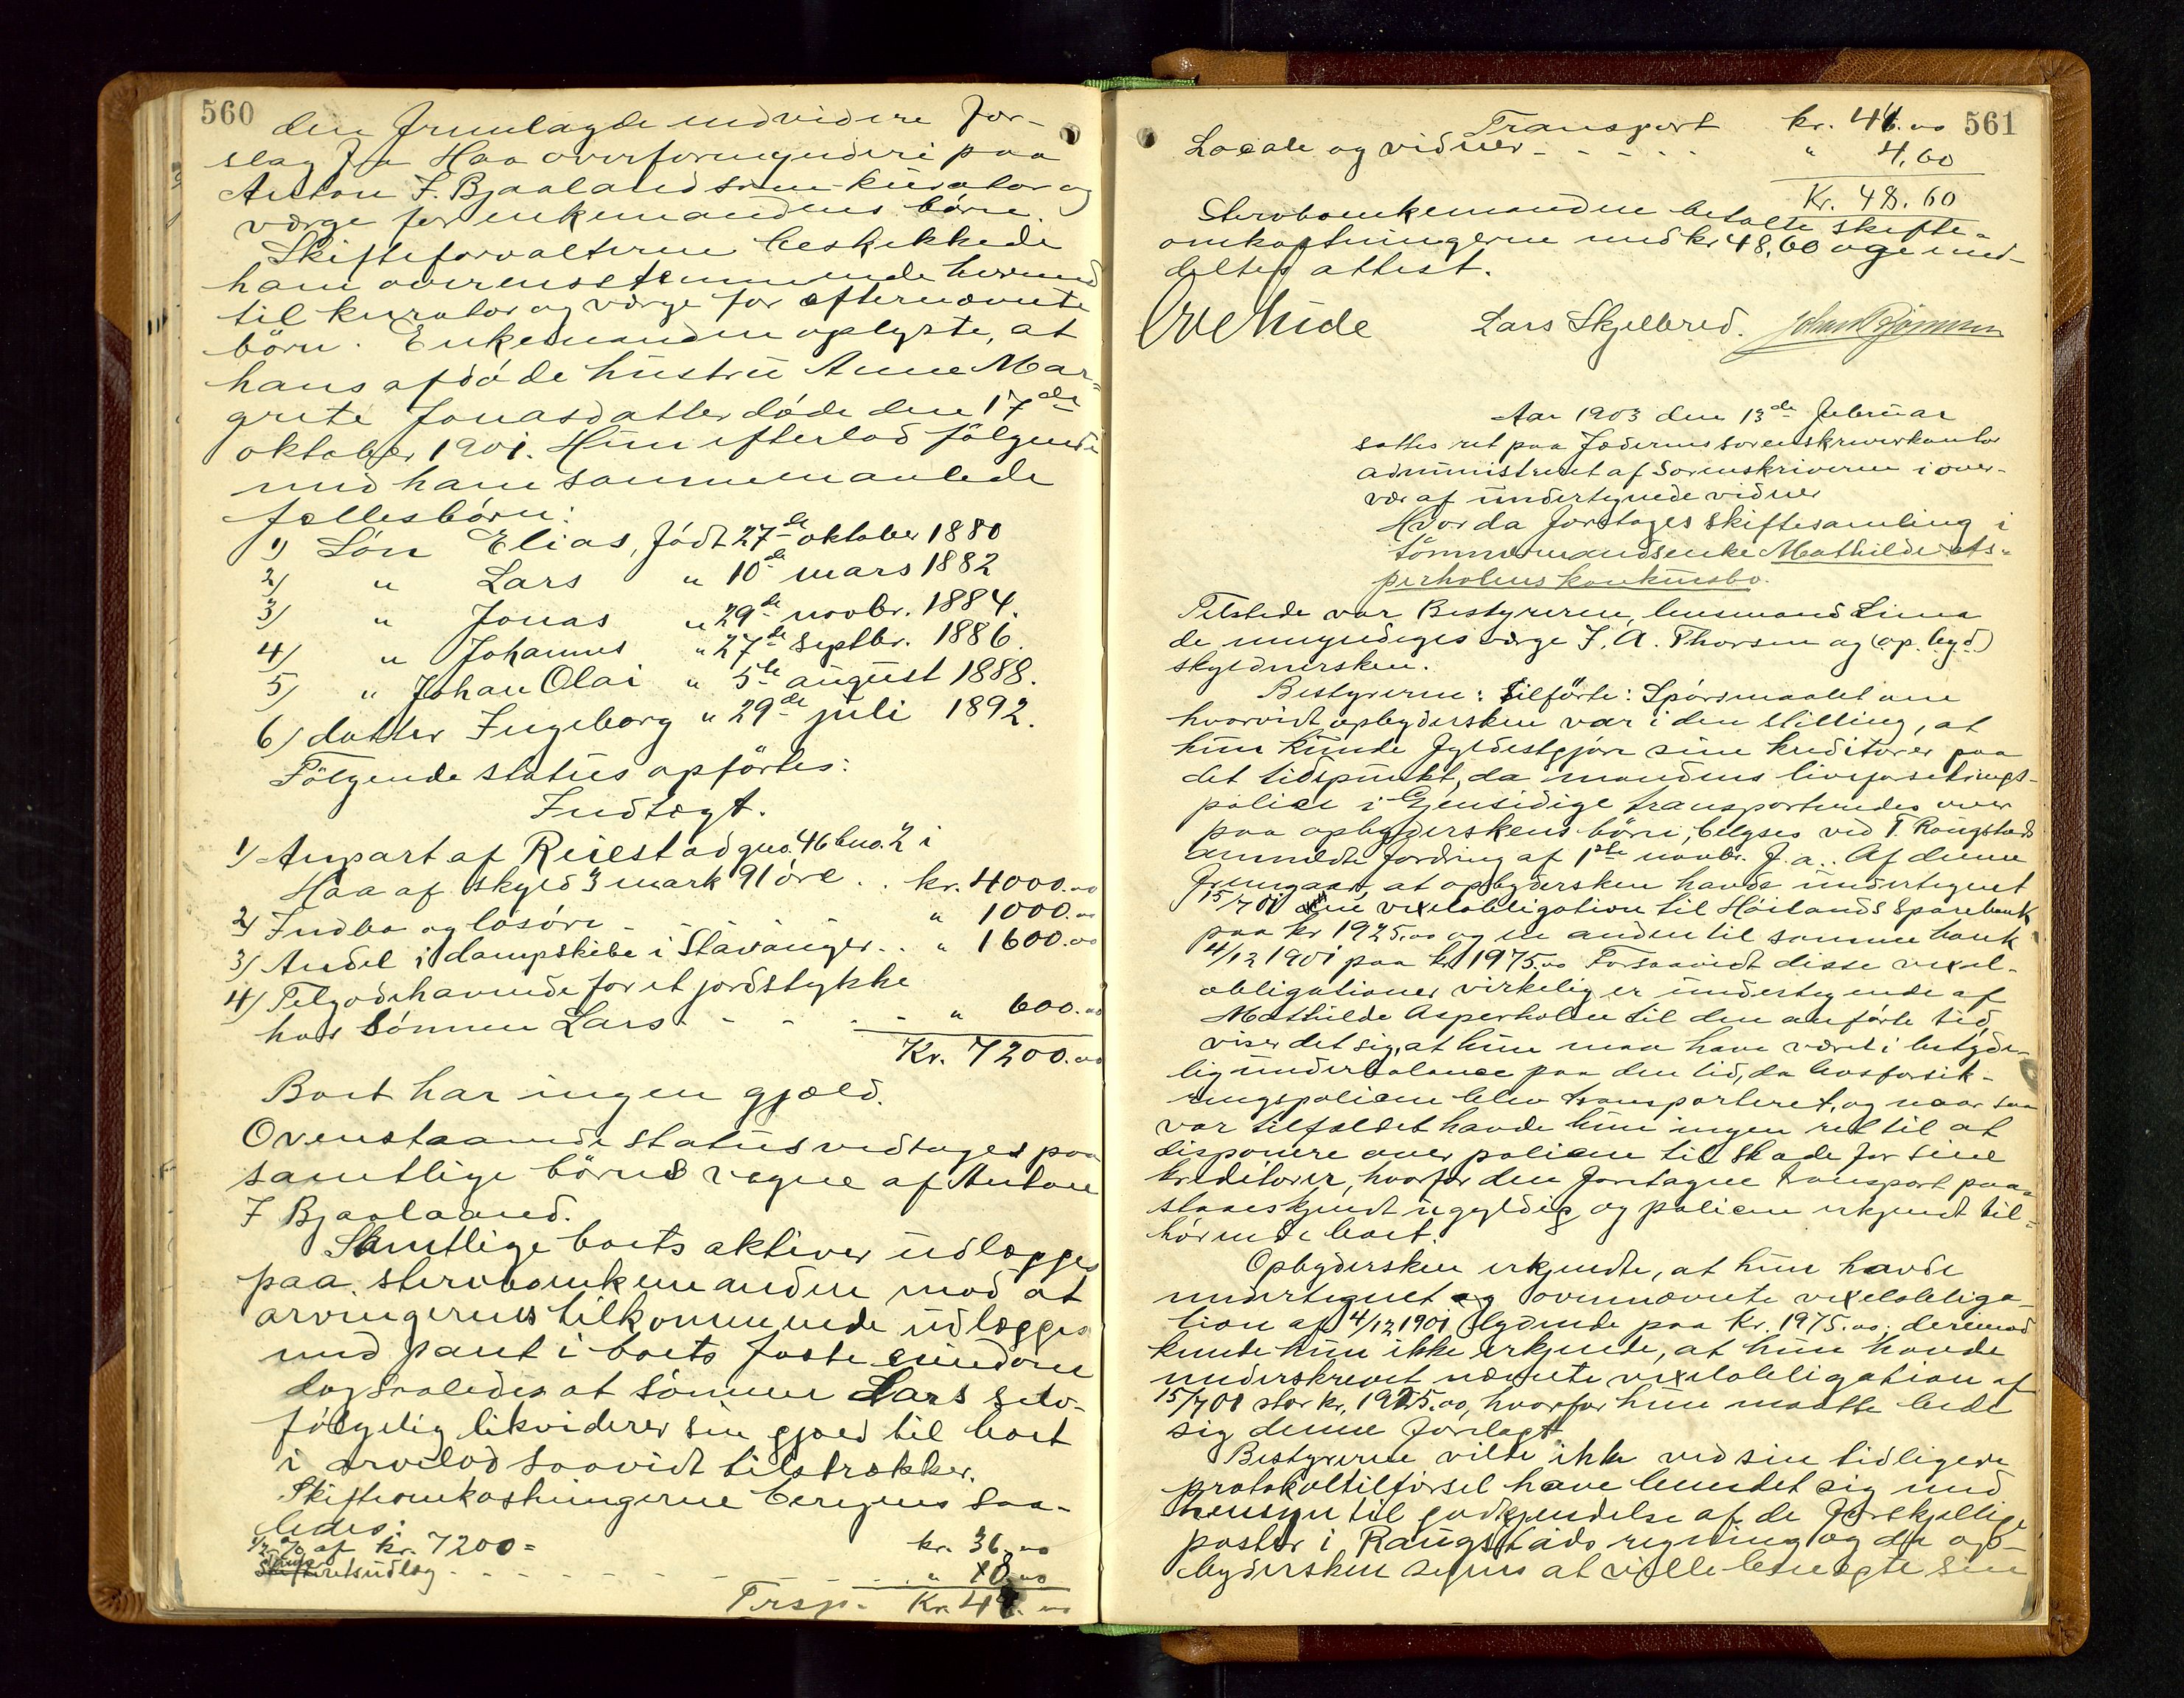 560
den fremlagde endvidere for-
slag fra Haa overformynderi paa
Anton F. Bjaaland som kurator og
værge for enkemandens børn.
Skifteforvalteren beskikkede
ham overensstemmende hermed
til kurator og værge for efternævnte
børn. Enkemanden oplyste, at
hans afdøde hustru Anne Mar-
grete Jonasdatter døde den 17de
oktober 1901. Hun efterlod følgende
med ham sammenavlede
fællesbørn:
1) Søn Elias, født 27de oktober 1880
2) " Lars " 10de mars 1882
3) " Jonas " 29de novbr. 1884.
4) " Johannes " 27de septbr. 1886.
5) " Johan Olai " 5te august 1888.
6) datter Ingeborg " 29de juli 1892.
Følgende status opførtes:
Indtægt.
1) Anpart af Reiestad gno. 46 bno. 2 i
Haa af skyld 3 mark 91 øre . . kr. 4000.00
2) Indbo og løsøre - " 1000.00
3) Andel i dampskibe i Stavanger . . " 1600.00
4) Tilgodehavende for et jordstykke
hos sønnen Lars - - - - " 600.00
Kr. 7200.00
Boet har ingen gjæld.
Ovenstaaende status vedtoges paa
samtlige børns vegne af Anton
F Bjaaland.
Samtlige boets aktiver udlægges
paa stervboenkemanden mod at
arvingernes tilkommende udlægges
med pant i boets faste eiendom
dog saaledes at sønnen Lars selv-
følgelig likviderer sin gjæld til boet
i arvelod saavidt tilstrækker.
Skifteomkostningerne beregnes saa-
ledes:
1/2 % af kr. 7200 = kr. 36.00
udlæg - - - - - - " 8.00
Trsp. Kr. 44.00
561
Transport kr. 44.00
Locale og vidner - - - - - " 4,60
Kr. 48.60
Stervboenkemanden betalte skifte-
omkostningerne med kr 48,60 og med-
deltes attest.
Hvide Lars Skjelbred.
Aar 1903 den 13de februar
sattes ret paa Jæderens sorenskriverkontor
administreret af sorenskriveren i over-
vær af undertegnede vidner
Hvor da foretoges skiftesamling i
tømmermandsenke Mathilde As-
perholms konkursbo.
Tilstede var Bestyreren, lensmand Lima
de umyndiges værge J. A. Thorsen og (op. byd.)
skyldnersken.
Bestyreren: tilførte: Spørsmaalet om
hvorvidt opbydersken var i den stilling, at
hun kunde fyldestgjøre sine kreditorer paa
det tidspunkt, da mandens livsforsikrings-
police i Gjensidige transporteredes over
paa opbyderskens børn, belyses ved T. Raugstads
anmeldte fordring af 1ste novbr. f. a. Af denne
fremgaar, at opbydersken havde undertegnet
15/7 01 en vexelobligation til Høilands Sparebank
paa kr 1925.00 og en anden til samme bank
4/12 1901 paa kr 1975.00 Forsaavidt disse vexel-
obligationer virkelig er undertegnede af
Mathilde Asperholm til den anførte tid,
viser det sig, at hun maa have været i betyde-
lig underbalance paa den tid, da livsforsik-
ringspolicen blev transporteret, og naar saa
var tilfældet havde hun ingen ret til at
disponere over policen til skade for sine
kreditorer, hvorfor den foretagne transport paa-
staaes kjendt ugyldig og policen erkjendt til-
hørende boet.
Opbydersken erkjendte, at hun havde
undertegnet ovennævnte vexelobliga-
tion af 4/12 1901 lydende paa Kr. 1975.00; derimod
kunde hun ikke erkjende, at hun havde
underskrevet nævnte vexelobligation af
15/7 01 stor kr. 1925.00, hvorfor hun maatte bede
sig denne forelagt.
Bestyreren vilde ikke ved sin tidligere
protokoltilførsel have bundet sig med
hensyn til godkjendelse af de forskjellige
poster i Raugstads regning og da op-
bydersken synes at ville benegte sin